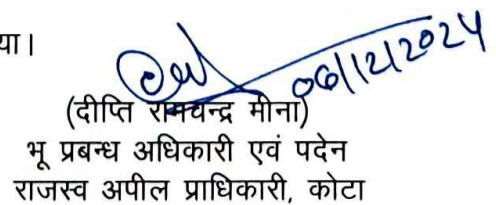 या।
06/12/2024
(दीप्ति रामचन्द्र मीना)
भू प्रबन्ध अधिकारी एवं पदेन
राजस्व अपील प्राधिकारी, कोटा